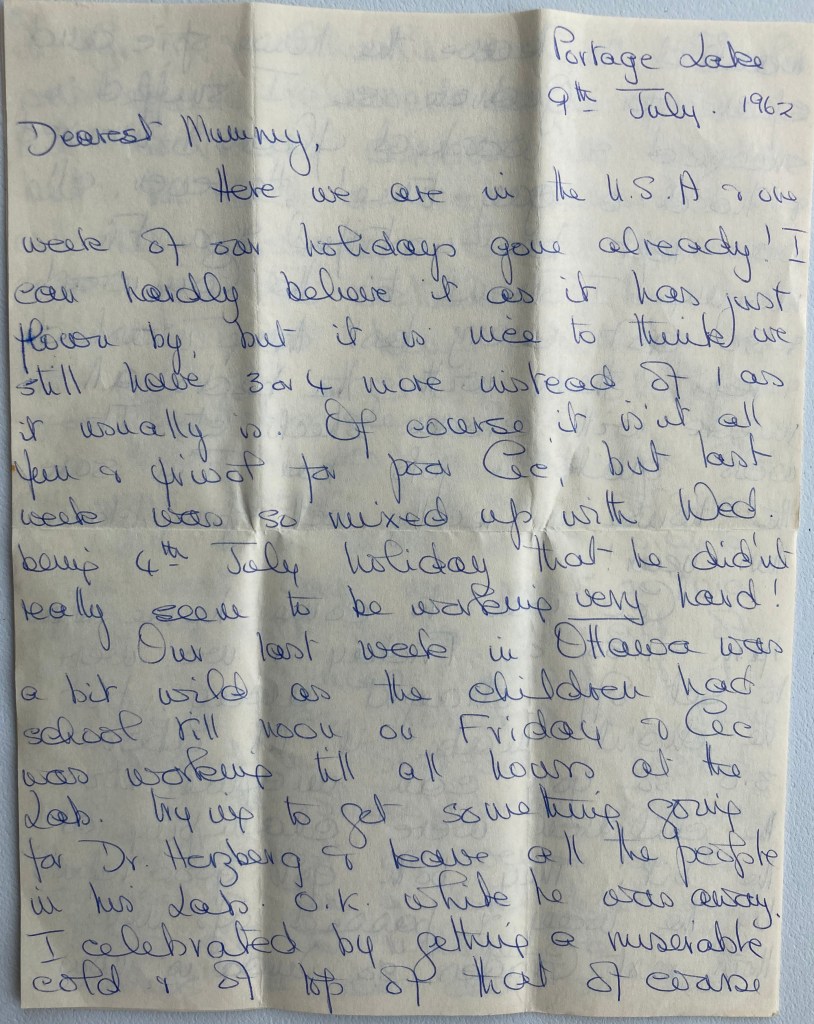 Portage Lake
9th July. 1962
Dearest Mummy,
Here we are in the U.S.A & one
week of our holidays gone already! I
can hardly believe it as it has just
flown by, but it is nice to think we
still have 3 or 4 more instead of 1 as
it usually is. Of course it is'nt all
fun & frivol for poor Cec, but last
week was so mixed up with Wed.
being 4th July holiday that he did'nt
really seem to be working very hard!
Our last week in Ottawa was
a bit wild as the children had
school till noon on Friday & Cec
was working till all hours at the
Lab. trying to get something going
for Dr. Herzberg & leave all the people
in his Lab. O.K. while he was away.
I celebrated by getting a miserable
cold & of top of that of course